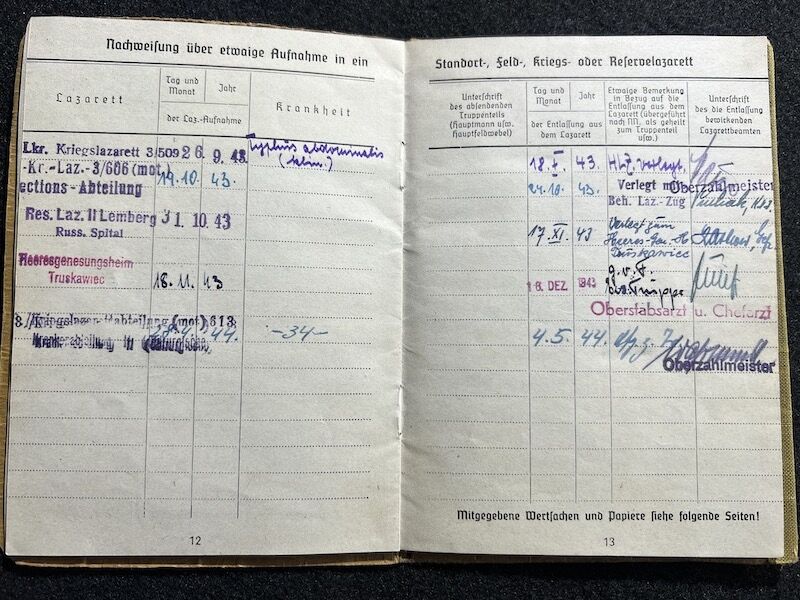 Nachweisung über etwaige Aufnahme in ein
Lazarett
Tag und Monat
Jahr
der Laz.-Aufnahme
Krankheit
Lkr. Kriegslazarett 3/509 26. 9. 43. Typhus abdominalis
(klin.)
-Kr.-Laz.-3/606 (mot)
19.10. 43.
ections-Abteilung
Res. Laz. II Lemberg 31. 10. 43
Russ. Spital
Heeresgenesungsheim
Truskawiec 18. 11. 43
Kriegslazarettabteilung (mot) 613
28.4. 44. -34-
Krankenabteilung in
12
Standort-, Feld-, Kriegs- oder Reservelazarett
Unterschrift
des absendenden
Truppenteils
(Hauptmann usw.
Hauptfeldwebel)
Tag und
Monat
Jahr
der Entlassung aus
dem Lazarett
Etwaige Bemerkung
in Bezug auf die
Entlassung aus dem
Lazarett (übergeführt
nach NN. als geheilt
zum Truppenteil
usw.)
Unterschrift
des die Entlassung
bewirkenden
Lazarettbeamten
18. X. 43. verlegt
Oberzahlmeister
24.10. 43. Verlegt mit
Beh. Laz.-Zug
17. XI. 43 Verlegt zum
Heeres-Gen.-H
Truskawiec
16. DEZ. 1943 g.v.F.
Truppe
Oberstabsarzt u. Chefarzt
4.5. 44.
Oberzahlmeister
Mitgegebene Wertsachen und Papiere siehe folgende Seiten!
13